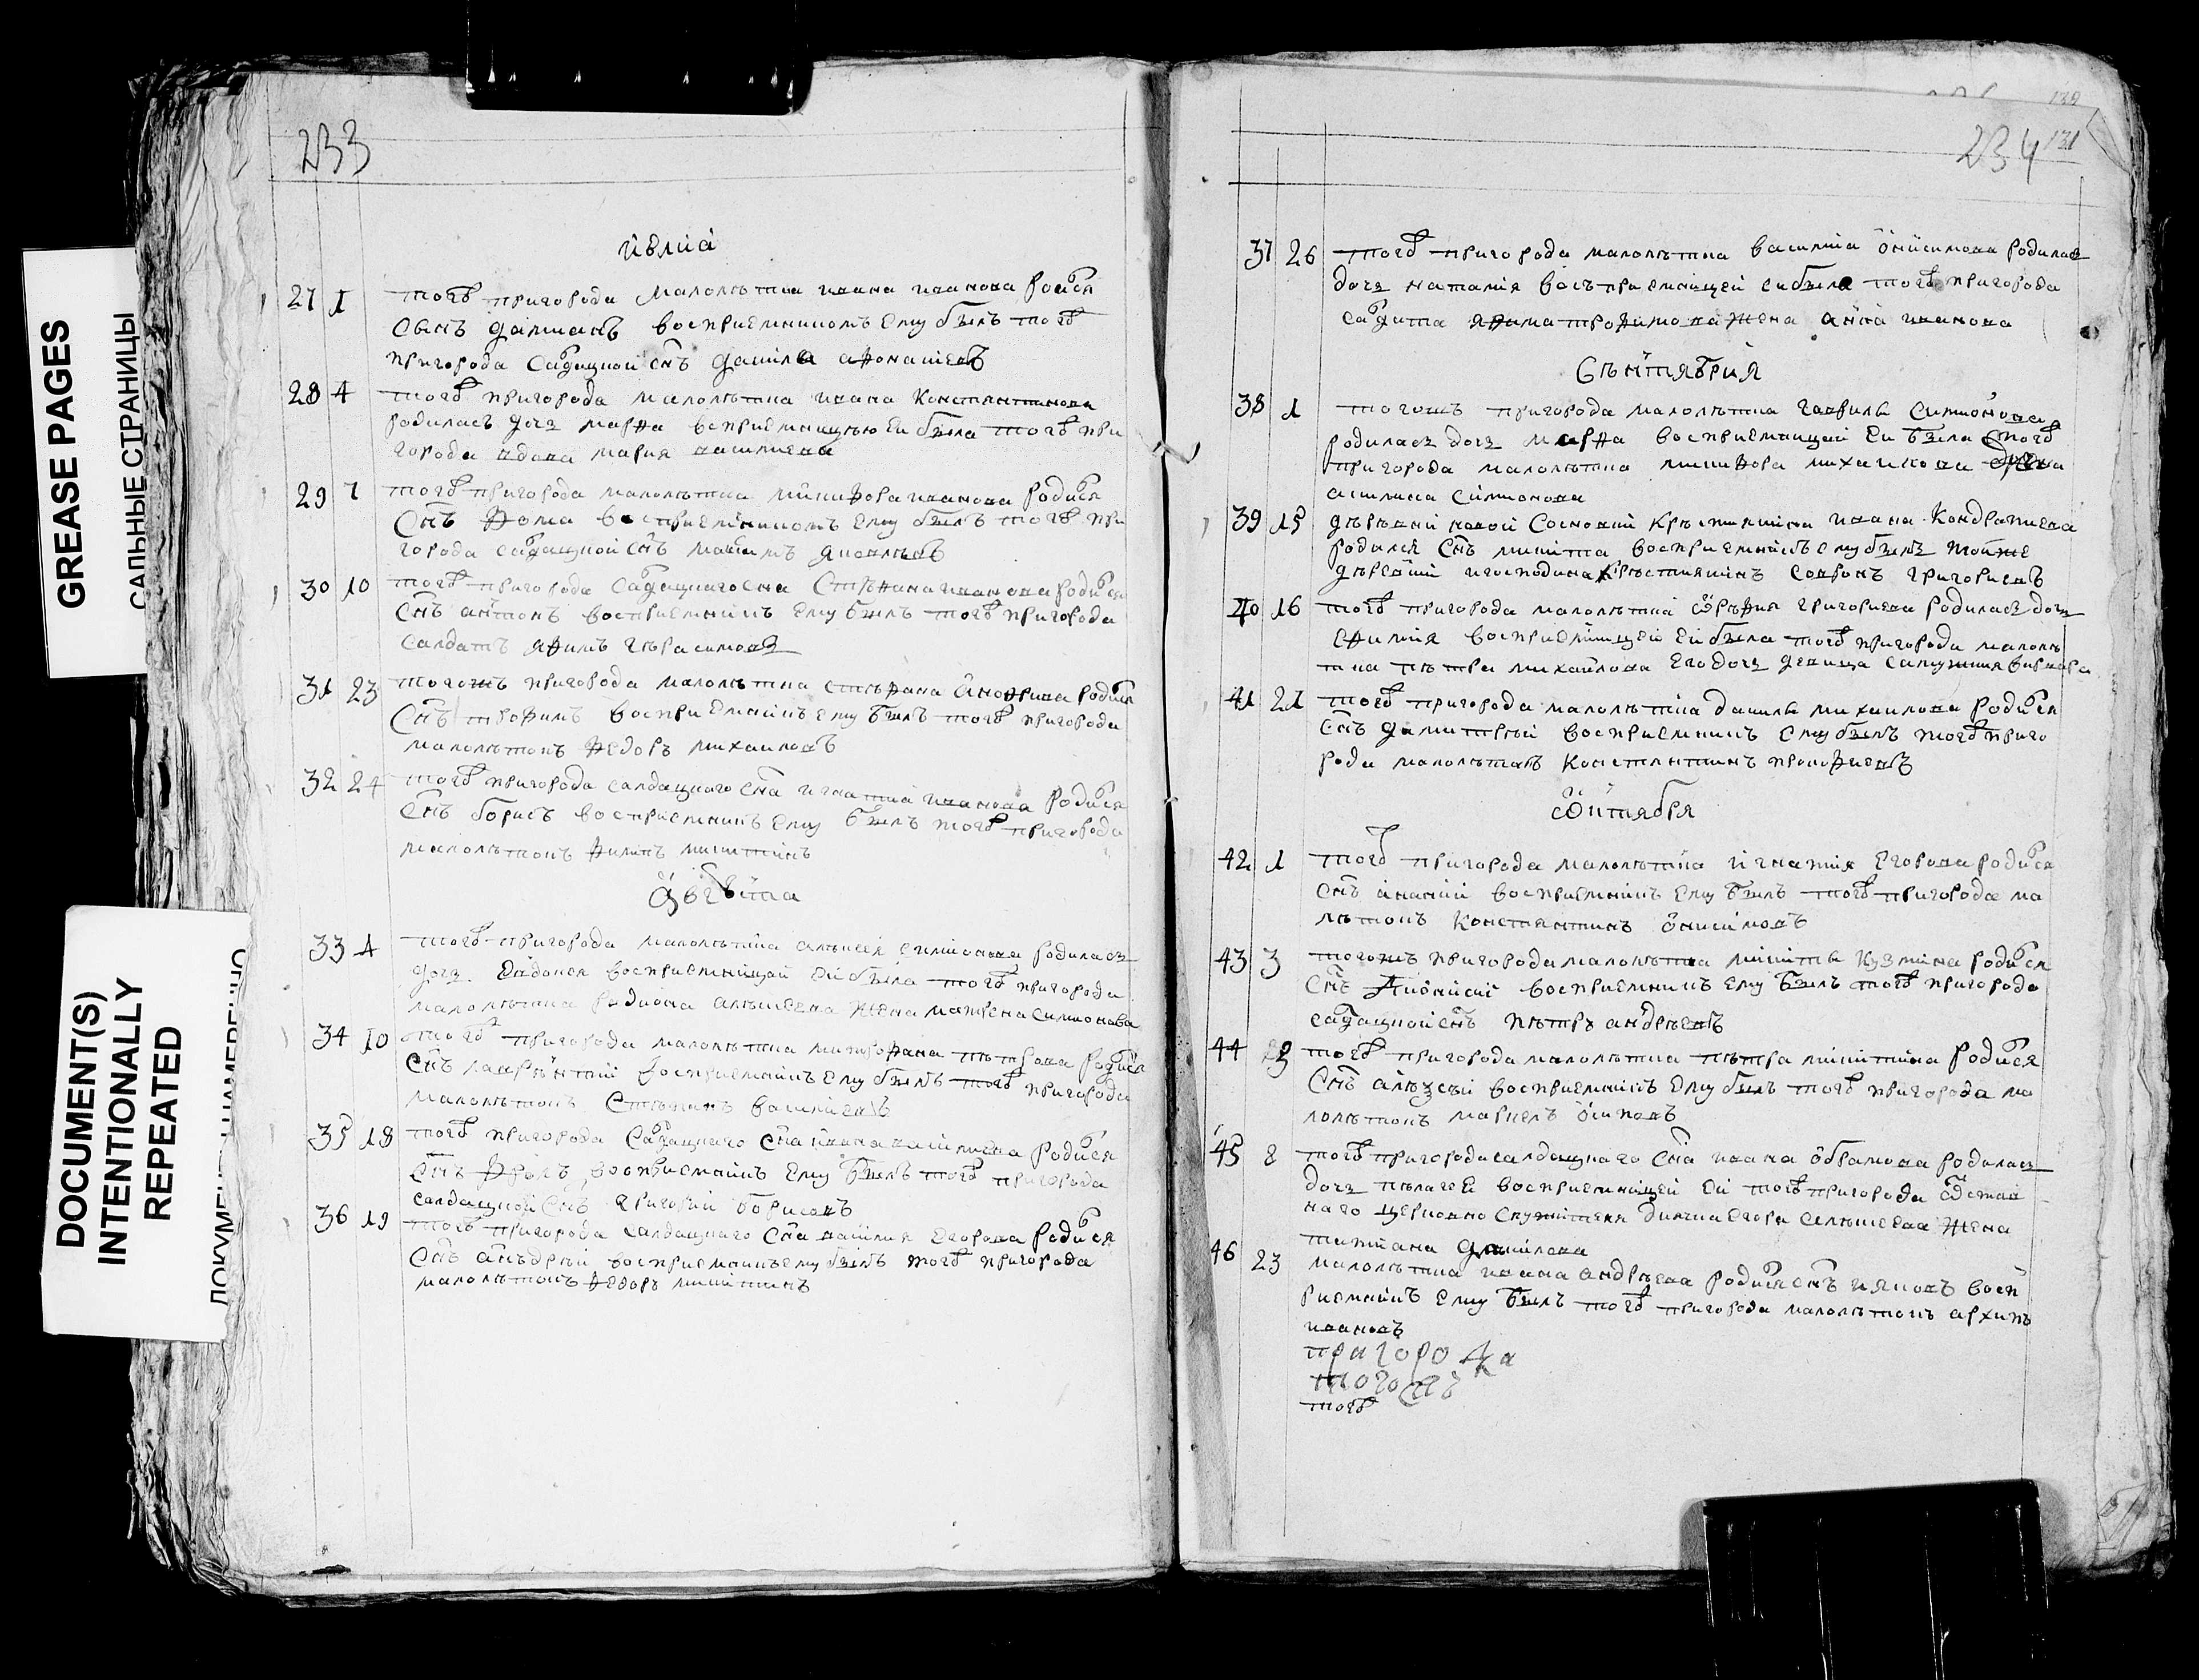 GREASE PAGES
САЛЬНЫЕ СТРАНИЦЫ
DOCUMENT(S)
INTENTIONALLY
REPEATED
233
июлиа
27 1 тогож пригорода малолѣтка ивана иванова родися
сынъ восприемникомъ ему былъ тогож
пригорода салдацкой снъ данила афонасиевъ
28 4 тогож пригорода малолѣтка ивана Константинова
родилась дочь марфа восприемницею ей была тогож при
города вдова мария василиева
29 7 тогож пригорода малолѣтка никифора иванова родися
снъ фома восприемникомъ ему былъ тогож при
города салдацкой снъ максимъ яковлевъ
30 10 тогож пригорода салдацкаго сна Стефана иванова родися
снъ антонъ восприемникъ ему былъ тогож пригорода
салдатъ яфимъ герасимовъ
31 23 тогожъ пригорода малолѣтка стефана родися
снъ трофимъ восприемникъ ему былъ тогож пригорода
малолѣтокъ федоръ михаиловъ
32 24 тогож пригорода салдацкого сна игнатиа иванова родися
снъ борисъ восприемникъ ему былъ тогож пригорода
малолѣтокъ филипъ никитинъ
августа
33 4 тогож пригорода малолѣтка алексея симионова родилась
дочь Евдокея восприемницей ей была тогож пригорода
малолѣтка родиона алексеева жена матрена симионова
34 10 тогож пригорода малолѣтка митрофана петрова родися
снъ лаврентий восприемникъ ему былъ тогож пригорода
малолѣтокъ Степанъ василиевъ
35 18 тогож пригорода салдацкаго сна ивана василиева родися
снъ фролъ восприемникъ ему былъ тогож пригорода
салдацкой снъ григорий борисовъ
36 19 тогож пригорода салдацкаго сна василия Егорова родися
снъ анъдрей восприемникъ ему былъ тогож пригорода
малолѣтокъ федоръ никитинъ
234 131
37 26 тогож пригорода малолѣтка василиа онисимова родилась
дочь наталия восъприемницей ей была тогож пригорода
салдата яфима трофимова жена анна иванова
Сентября
38 1 тогожъ пригорода малолѣтка гаврилы симионова
родилась дочь марфа восприемницей ей была тогож
пригорода малолѣтка никифора михаилова жена
акилина симионова
39 15 деревни новой Сосновки крестянина ивана Кондратиева
родился снъ никита восприемникъ ему былъ той же
деревни игосподина крестиянинъ софронъ григориевъ
40 16 тогож пригорода малолѣтка григориева родилась дочь
ефимия восприемницей ей была тогож пригорода малолѣ
тка петра михаилова его дочь девица варвара
41 21 тогож пригорода малолѣтка данилы михаилова родися
снъ димитрей восприемникъ ему былъ тогож приго
рода малолѣтокъ Константинъ прокофиевъ
октября
42 1 тогож пригорода малолѣтка игнатия Егорова родися
снъ ананий восприемникъ ему былъ тогож пригорода ма
лѣтокъ Константинъ онисимовъ
43 3 тогожъ пригорода малолѣтка никиты кузмина родися
снъ восприемникъ ему былъ тогож пригорода
салдацкой снъ петръ андреевъ
44 тогож пригорода малолѣтка петра никитина родися
снъ алексей восприемникъ ему былъ тогож пригорода ма
лолѣтокъ маркелъ осиповъ
45 8 тогож пригорода салдацкаго сна ивана обрамова родилась
дочь пелагея восприемницей ей тогож пригорода отстав
наго церковно служителя диячка Егора жена
татиана данилова
46 23 малолѣтка ивана андреева родися снъ ияковъ восп
риемникъ ему былъ тогож пригорода малолѣтокъ архипъ
ивановъ
пригорода
тогожъ
тогож